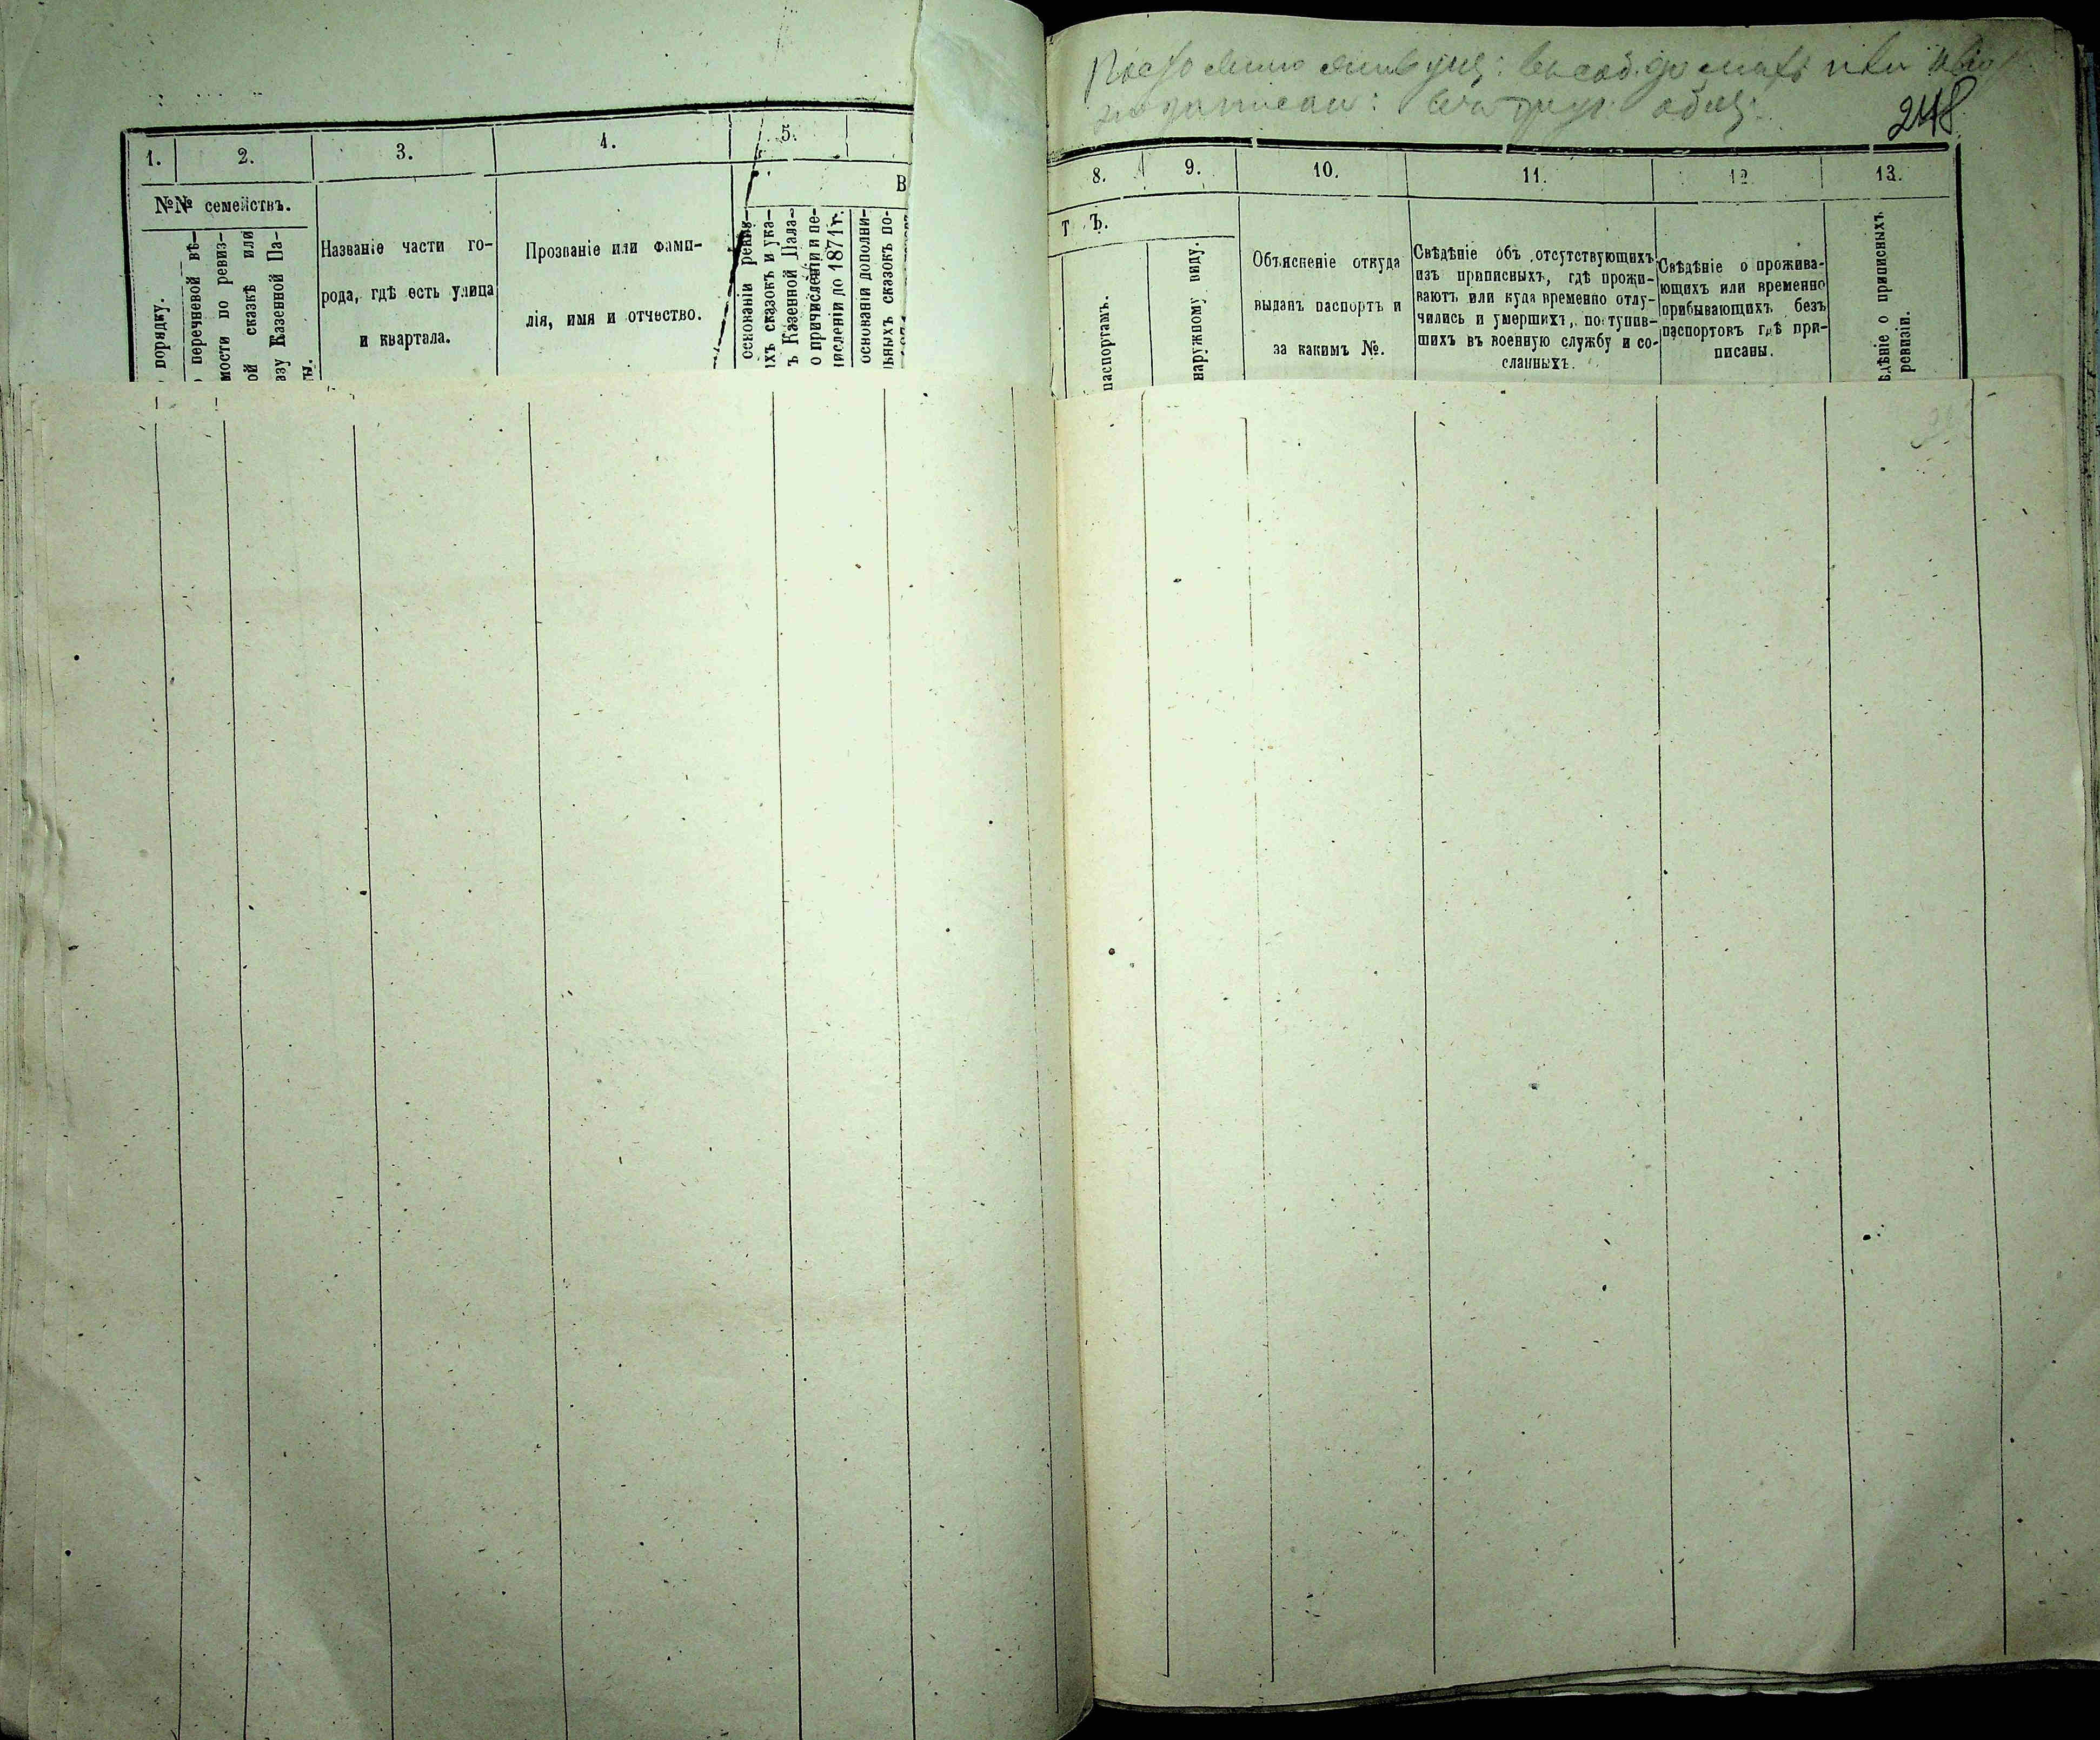 248
1.
2.
3.
4.
5.
№№ семействъ.
порядку.
перечневой вѣ-
мости по ревиз-
ой сказкѣ или
азу Казенной Па-
ы.
Названіе части го-
рода, гдѣ есть улица
и квартала.
Прозваніе или фами-
лія, имя и отчество.
В
основаніи ревиз-
хъ сказокъ и ука-
ъ Казенной Пала-
о причисленіи и пе-
численіи до 1871 г.
основаніи дополни-
ьныхъ сказокъ по-
8.
9.
10.
11.
12
13.
Т Ъ.
паспортамъ.
наружному виду.
Объясненіе откуда
выданъ паспортъ и
за какимъ №.
Свѣдѣніе объ отсутствующихъ
изъ приписныхъ, гдѣ прожи-
ваютъ или куда временно отлу-
чились и умершихъ, поступив-
шихъ въ военную службу и со-
сланныхъ.
Свѣдѣніе о прожива-
ющихъ или временно
прибывающихъ безъ
паспортовъ гдѣ при-
писаны.
ѣдѣніе о приписныхъ
ревизіи.